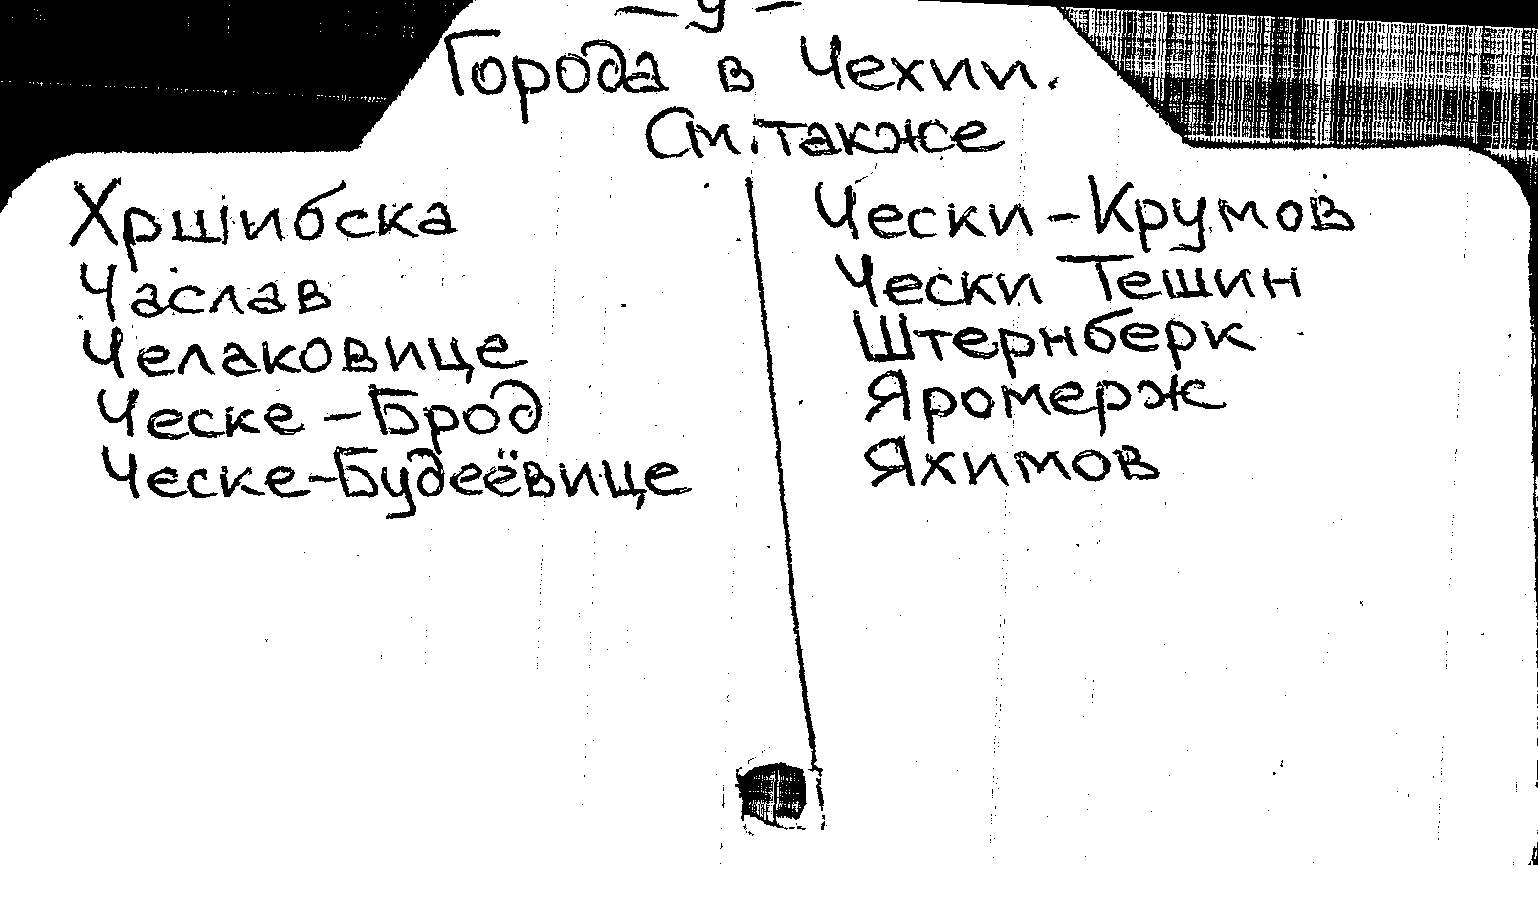 – у –
Города в Чехии.
См. также
Хршибска
Часлав
Челаковице
Ческе-Брод
Ческе-Будеёвице
Чески-Крумов
Чески Тешин
Штернберк
Яромерж
Яхимов